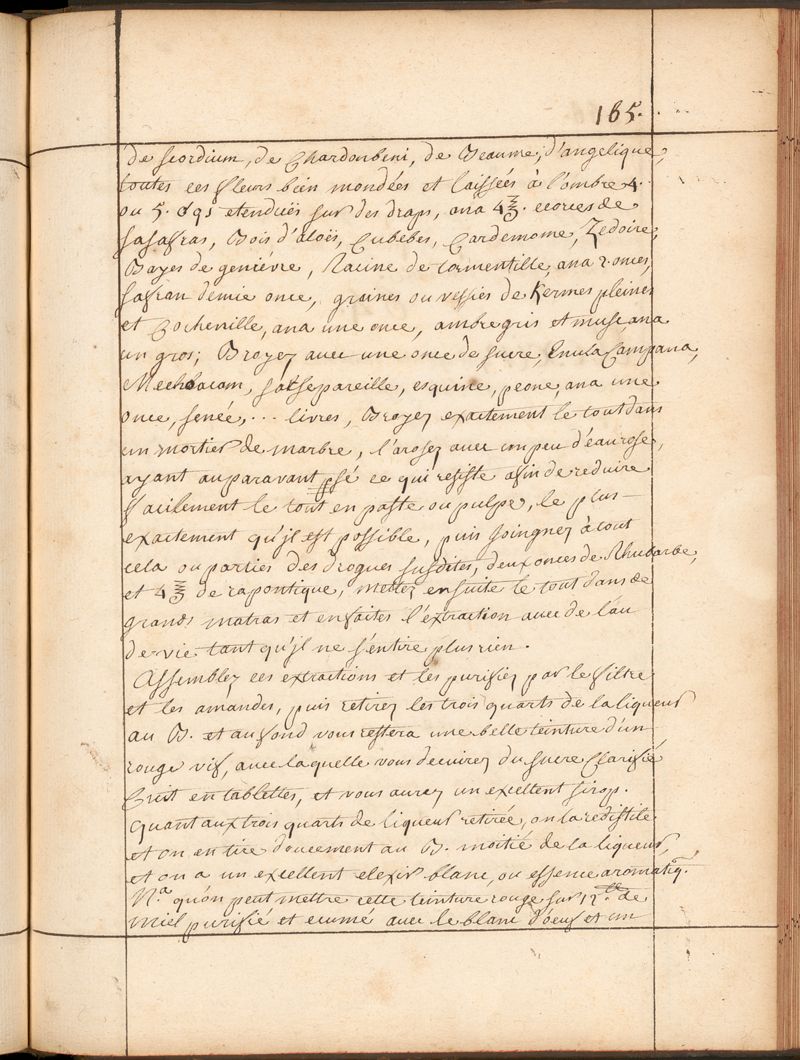 165.
de scordium, de Chardonbeni, de Beaume, d'angelique,
toutes ces fleurs bien mondées et laissées à l'ombre 4.
ou 5. etenduës sur des draps, ana 4 ℥. ecorces de
sasafras, Bois d'aloës, Cubébes, Cardemome, Zedoire,
Bayes de geniévre, Racine de tormentille, ana 2. onces,
safran demie once, graines ou vessies de Kermes pleines
et Cochenille, ana une once, ambre gris et musc, ana
un gros; Broyez avec une once de sucre, Enula Campana,
Mechoacam, salsepareille, esquine, peone, ana une
once, senée, ... livres, Broyez exactement le tout dans
un mortier de marbre, l'arosez avec un peu d'eau rose,
ayant auparavant ce qui resiste afin de reduire
facilement le tout en paste ou pulpe, le plus —
exactement qu'jl est possible, puis joingnez à tout
cela ou parties des drogues susdites, deux onces de Rhubarbe,
et 4 ℥ de rapontique, mettez ensuite le tout dans de
grands matras et en faites l'extraction avec de l'au
de vie tant qu'jl ne s'entire plus rien.
Assemblez ces extractions et les purifiez par le filtre
et les amandes, puis retirez les trois quarts de la liqueur
au B. et au fond vous restera une belle teinture d'un
rouge vif, avec laquelle vous decuirez du sucre Clarifié
Cuit en tablettes, et vous aurez un excellent sirop.
Quant aux trois quarts de liqueur retirée, on la redistile
et on en tire doucement au B. moitié de la liqueur,
et on a un excellent elexir blanc, ou essence aromatiq.
N.a qu'on peut mettre cette teinture rouge sur 12. lb de
miel purifié et ecumé avec le blanc d'oeuf et un